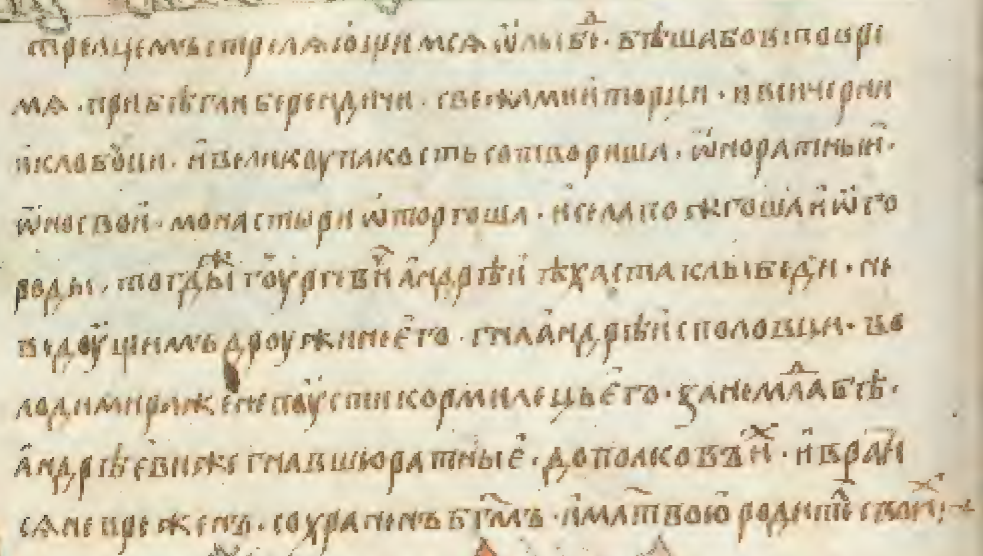 стрелцемъ стрелѧющимсѧ ѿ лыбеⷣ · бѣша бо в то врѣ
мѧ · прибѣгли берендичи · свежами и торци · и вси черни
и клобоуци · и великоу пакость сотвориша · ѿно ратныи ·
ѿно свои · монастыри ѿторгоша · и села пожгоша и ѿ го
роды · тогдыжⷷ гоургевиⷱ андрѣи ѣхаста к лыбеди · не
ведоущимъ дроужине его · гна андрѣи с половци · во
лодимира же не поусти кормилець его · занемлаⷣ бѣ ·
андрѣе виже гнавшю ратные · до полковⸯвⷯ и · и врани
сѧ не врежень · сохраненъ бг҃мъ · и млⷮвою родитеⷧ своиⷯ,